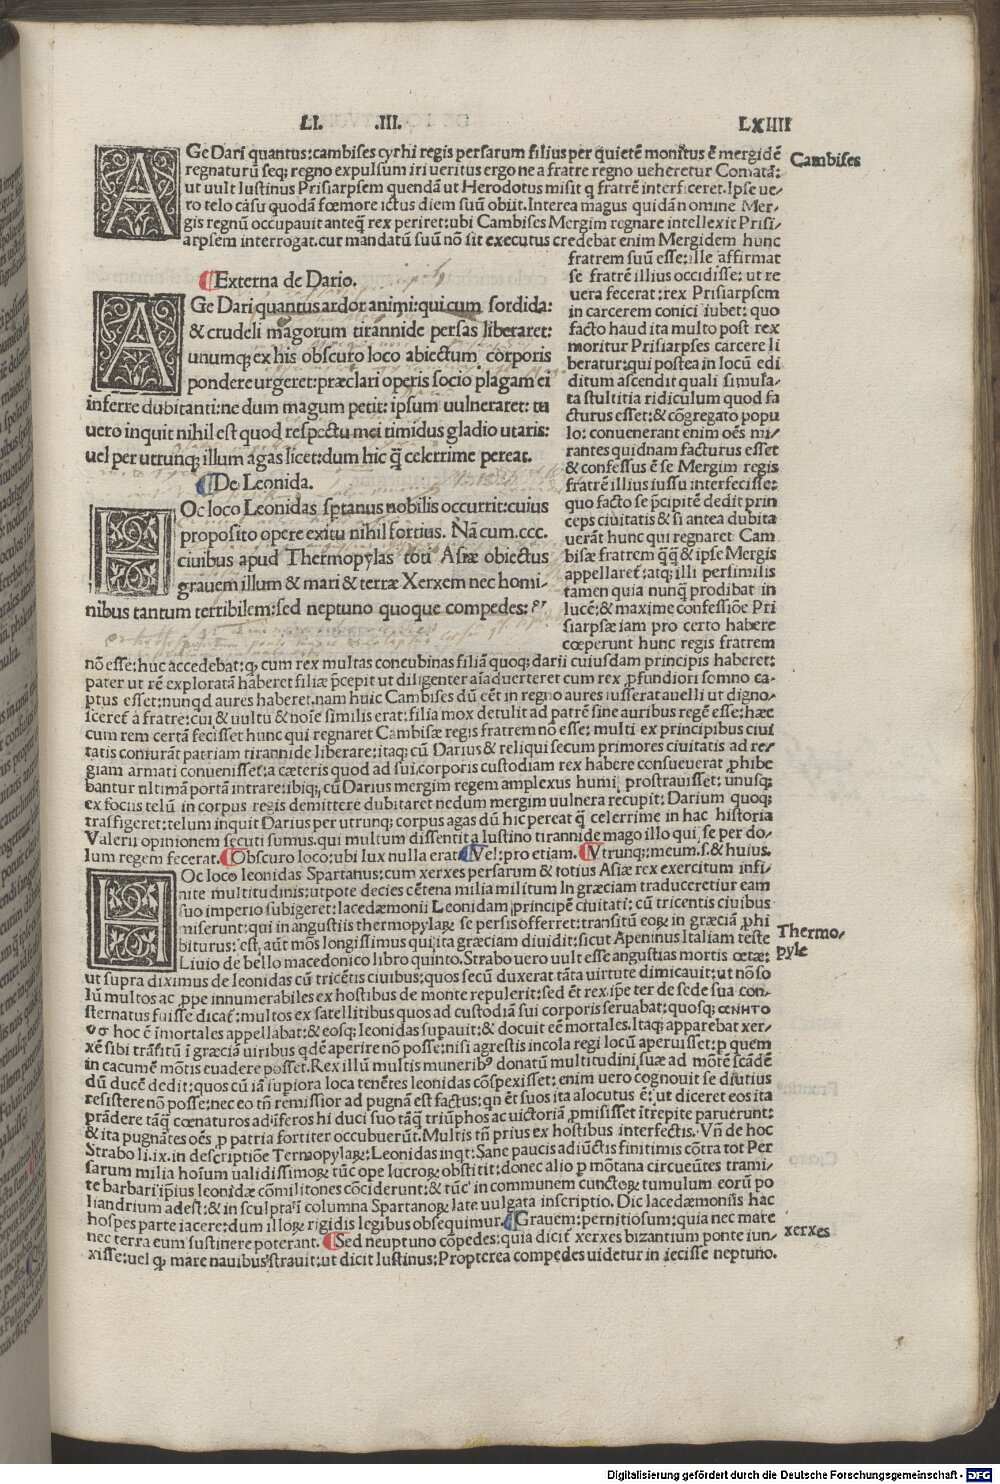 LI. .III. LXIIII
AGe Dari quantus: cambises cyrhi regis persarum filius per quietē monitus ē mergidē
regnaturū seq; regno expulsum iri ueritus ergo ne a fratre regno ueheretur Comatā:
ut uult Iustinus Prisiarpsem quendā ut Herodotus misit q fratrē interficeret. Ipse ue-
ro telo casu quodā fœmore ictus diem suū obiit. Interea magus quidā nomine Mer-
gis regnū occupauit anteq̄ rex periret: ubi Cambises Mergim regnare intellexit Prisi-
arpsem interrogat. cur mandatū suū nō sit executus credebat enim Mergidem hunc
Cambises
fratrem suū esse: ille affirmat
se fratrē illius occidisse: ut re
uera fecerat: rex Prisiarpsem
in carcerem conici iubet: quo
facto haud ita multo post rex
moritur Prisiarpses carcere li
beratur: qui postea in locū edi
ditum ascendit quali simula-
ta stultitia ridiculum quod fa
cturus esset: & cōgregato popu
lo: conuenerant enim oēs mi-
rantes quidnam facturus esset
& confessus ē se Mergim regis
fratrē illius iussu interfecisse:
quo facto se p̄cipitē dedit prin
ceps ciuitatis & si antea dubita
uerāt hunc qui regnaret Cam
bisæ fratrem q̄q̄ & ipse Mergis
appellaret: atq; illi persimilis
tamen quia nunq̄ prodibat in
lucē: & maxime confessiōe Pri
siarpsæ iam pro certo habere
cœperunt hunc regis fratrem
Externa de Dario.
AGe Dari quantus ardor animi: qui cum sordida:
& crudeli magorum tirannide persas liberaret:
unumq; ex his obscuro loco abiectum corporis
pondere urgeret: præclari operis socio plagam ei
inferre dubitanti: ne dum magum petit: ipsum uulneraret: tu
uero inquit nihil est quod respectu mei timidus gladio utaris:
uel per utrunq; illum agas licet: dum hic q̄ celerrime pereat.
De Leonida.
HOc loco Leonidas sptanus nobilis occurrit: cuius
proposito opere exitu nihil fortius. Nā cum .ccc.
ciuibus apud Thermopylas toti Asiæ obiectus
grauem illum & mari & terræ Xerxem nec homi-
nibus tantum terribilem: sed neptuno quoque compedes:
nō esse: huc accedebat: q; cum rex multas concubinas filiā quoq; darii cuiusdam principis haberet:
pater ut rē exploratā haberet filiæ p̄cepit ut diligenter aīaduerteret cum rex p̄fundiori somno ca-
ptus esset: nunqd aures haberet. nam huic Cambises dū cēt in regno aures iusserat auelli ut digno-
sceret a fratre: cui & uultu & noīe similis erat: filia mox detulit ad patrē sine auribus regē esse: hæc
cum rem certā fecisset hunc qui regnaret Cambisæ regis fratrem nō esse: multi ex principibus ciui
tatis coniurāt patriam tirannide liberare: itaq; cū Darius & reliqui secum primores ciuitatis ad re-
giam armati conuenisset: a cæteris quod ad sui corporis custodiam rex habere consueuerat p̄hibe
bantur ultimā portā intrare: ibiq; cū Darius mergim regem amplexus humi prostrauisset: unusq;
ex sociis telū in corpus regis demittere dubitaret nedum mergim uulnera recupit: Darium quoq;
trasfigeret: telum inquit Darius per utrunq; corpus agas dū hic pereat q̄ celerrime in hac historia
Valerii opinionem secuti sumus. qui multum dissentit a Iustino tirannide mago illo qui se per do-
lum regem fecerat. Obscuro loco: ubi lux nulla erat Vel: pro etiam. Vtrunq;: meum .s. & huius.
HOc loco leonidas Spartanus: cum xerxes persarum & totius Asiæ rex exercitum infi-
nite multitudinis: utpote decies cētena milia militum In græciam traduceretiur eam
suo imperio subigeret: lacedæmonii Leonidam principē ciuitati: cū tricentis ciuibus
miserunt: qui in angustiis thermopylaꝝ se persis offerret: transitū eoꝝ in græciā p̄hi
biturus: est, aūt mōs longissimus qui ita græciam diuidit: sicut Apeninus Italiam teste
Liuio de bello macedonico libro quinto. Strabo uero uult esse angustias mortis œtæ:
Thermo-
pyle
ut supra diximus de leonidas cū tricētis ciuibus: quos secū duxerat. tāta uirtute dimicauit: ut nō so
lū multos ac ppe innumerabiles ex hostibus de monte repulerit: sed ēt rex ipe ter de sede sua con-
sternatus fuisse dicat: multos ex satellitibus quos ad custodiā sui corporis seruabat: quosq;
hoc ē īmortales appellabat: & eosq; leonidas supauit: & docuit eē mortales. Itaq; apparebat xer-
xē sibi trāsitū ī græciā uiribus qdē aperire nō posse: nisi agrestis incola regi locū aperuisset: p quem
in cacumē mōtis euadere posset. Rex illū multis muneribꝰ donatū multitudini suæ ad mōtē scādē
dū ducē dedit: quos cū iā supiora loca tenētes leonidas cōspexisset: enim uero cognouit se diutius
resistere nō posse: nec eo tn̄ remissior ad pugnā est factus: qn ēt suos ita alocutus ē: ut diceret eos ita
prādere tāq̄ cœnaturos ad īferos hi duci suo tāq̄ triūphos ac uictoriā p̄misisset ītrepite paruerunt:
& ita pugnātes oēs p patria fortiter occubuerūt. Multis tn̄ prius ex hostibus interfectis. Vn̄ de hoc
Strabo li. ix. in descriptiōe Termopylaꝝ: Leonidas inqt: Sane paucis adiūctis finitimis cōtra tot Per
sarum milia hoīum ualidissimoꝝ tūc ope lucroꝝ obstitit: donec alio p mōtana circueūtes trami-
te barbari ipius leonidæ cōmilitones cōciderunt: & tūc in communem cunctoꝝ tumulum eorū po
liandrium adest: & in sculpta ī columna Spartanoꝝ late uulgata inscriptio. Dic lacedæmoniis hac
hospes parte iacere: dum illoꝝ rigidis legibus obsequimur. Grauem: pernitiosum: quia nec mare
nec terra eum sustinere poterant. Sed neuptuno cōpedes: quia dicit xerxes bizantium ponte iun-
xisse: uel q; mare nauibus strauit: ut dicit Iustinus: Propterea compedes uidetur in iecisse neptuno.
xerxes
Digitalisierung gefördert durch die Deutsche Forschungsgemeinschaft - DFG